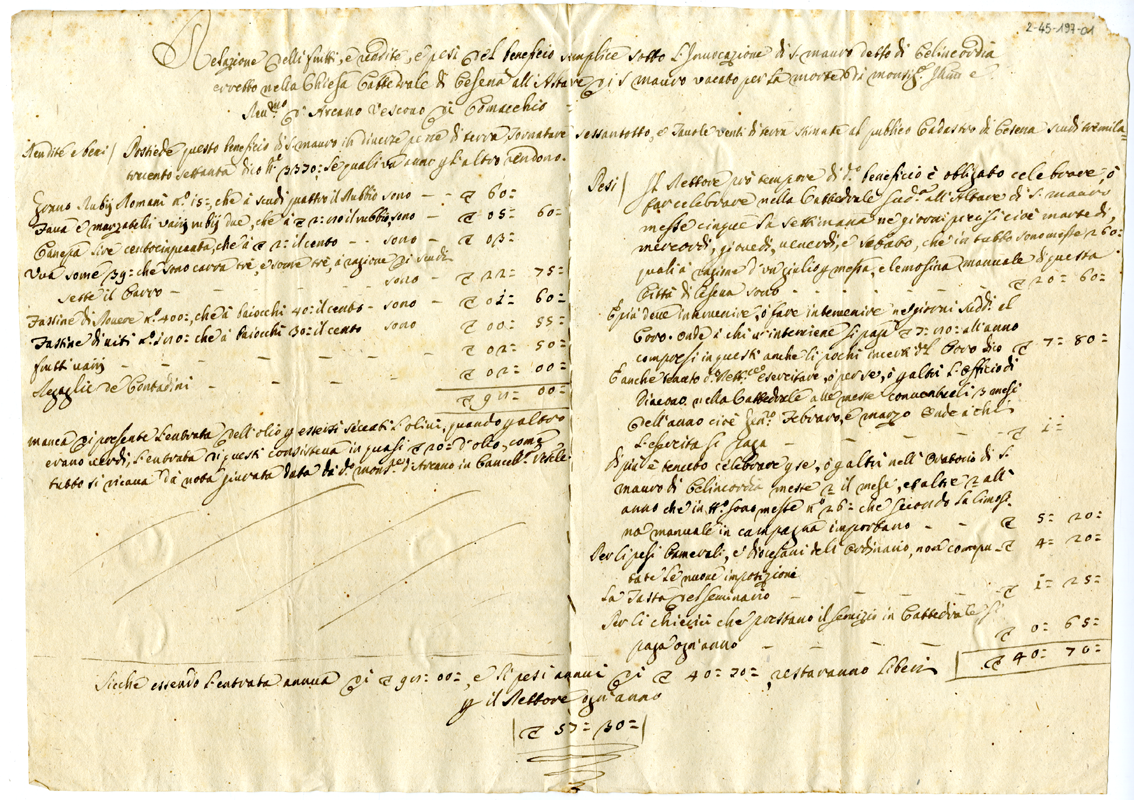 2-45-197-01
Relazione delli frutti, e rendite, e pesi del beneficio semplice sotto l'Invocazione di S. Mauro detto di Celincordia
erretto nella Chiesa Cattedrale di Cesena all'Altare di S. Mauro vacato per la morte di monsig.r Illmo e
Rev.mo d'Arcano Vescovo di Comacchio
Rendite e beni / Possiede questo beneficio di S. Mauro in diverse pezze di terra Tornature Sessantotto, e Tavole venti di terra stimate al publico Cadastro di Cesena scudi tremila-
trecento settanta dico 3370: le quali un anno p l'altro rendono.
Grano Rubij Romani n.o 15=, che à scudi quattro il Rubbio sono - 60=
Fava e marzatelli varij rubij due, che à 2:80 il rubbio, sono - 05= 60=
Canepa lire centocinquanta, che à 2: il cento - - sono - 03=
Uva some 39= che sono carra trè, e some trè, à ragione di scudi
sette il Carro - - - sono - 22= 75=
Fassine di Rovere n.o 400=, che à baiocchi 40: il cento - sono - 01= 60=
Fassine di viti n.o che à baiocchi 30: il cento sono 00= 55=
frutti varij - - - - - 02= 50=
Regaglie de Contadini - - - - 02= 00=
00=
manca di presente l'entrata dell'olio p essersi seccati l'olivi, quando p altro
erano verdi, l'entrata di questi consisteva in quasi d'olio, come
tutto si ricava dà nota giurata data da d.o mons.re d'Arcano in Cancell.a Vescle
Pesi / Il Rettore prò tempore di d.o beneficio è obligato celebrare, ò
far celebrare nella Cattedrale sud.a all'Altare di S. Mauro
messe cinque la settimana ne giorni precisi cioè martedì,
mercordì, giovedì, venerdì, e sabato, che in tutto sono messe 260=
quali à ragione d'un giulio p messa, elemosina manuale di questa
Città di Cesena sono - - - 60=
E più deve intervenire, ò fare intervenire ne giorni sudd.i al
Coro. Onde à chi v'interviene si paga all'anno
compresi in questi anche li pochi incerti del Coro dico 7= 80=
E anche tenuto d.o Rett.re esercitare, ò per se, ò p altri l'Officio di
Diacono nella Cattedrale alle messe conventuali 3 mesi
dell'anno cioè Gen.o Febraro, e marzo Onde à chi
l'esercita si paga - - - - 1=
Di più è tenuto celebrare p se, ò p altri nell'Oratorio di S.
Mauro di Celincordia messe 2 il mese, e altre 2 all'
anno che in tt.o sono messe n.o 26= che secondo la limosi-
na manuale in campagna importano - - 5= 20=
Per li pesi Camerali, e diocesani dell'Ordinario, non compu- 4= 20=
tate le nuove imposizioni
La Tassa del Seminario - - - 1= 25=
Per li chierici che prestano il servizio in Cattedrale si
paga ogn'anno - - - - 0= 65=
40= 70=
Sicche essendo l'entrata annua di 00=, e li pesi annui di 40= 70=, restaranno liberi
p il Rettore ogn'anno
57= 30=